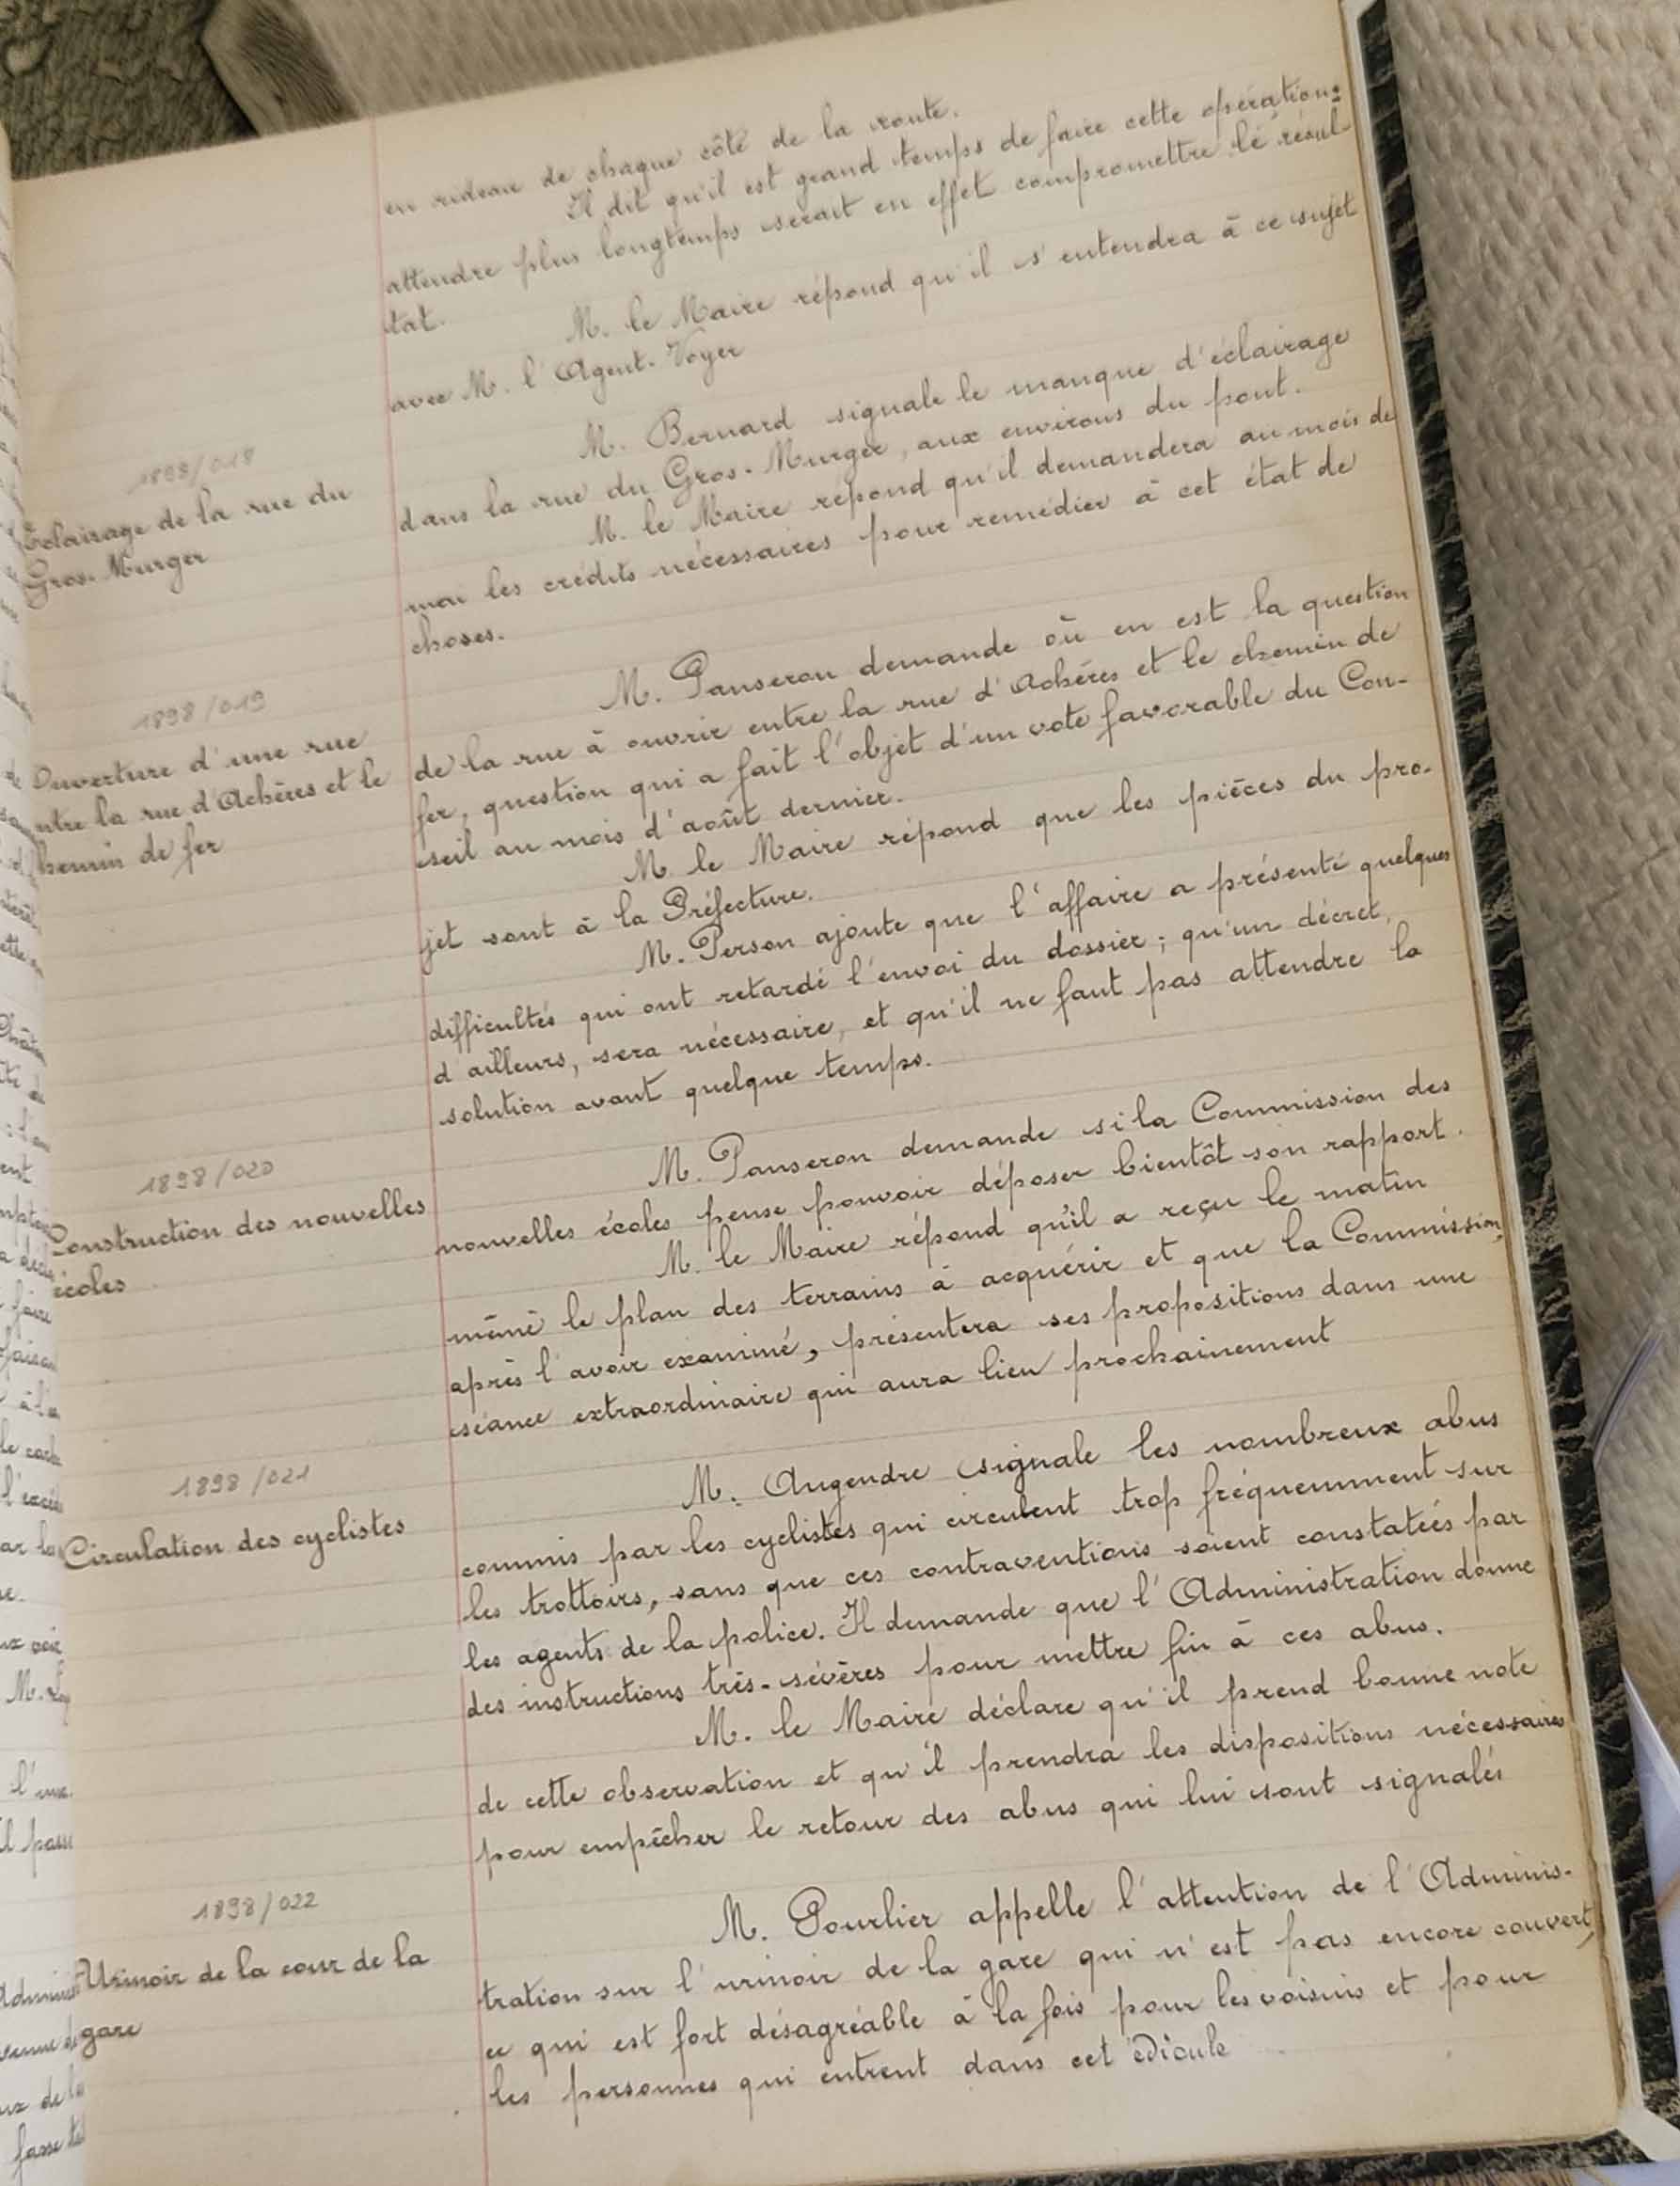 en rideau de chaque côté de la route.
Il dit qu'il est grand temps de faire cette opération:
attendre plus longtemps serait en effet compromettre le résul-
tat.
M. le Maire répond qu'il s'entendra à ce sujet
avec M. l'Agent-Voyer
1898/018
Éclairage de la rue du
Gros-Murger
M. Bernard signale le manque d'éclairage
dans la rue du Gros-Murger, aux environs du pont.
M. le Maire répond qu'il demandera au mois de
mai les crédits nécessaires pour remédier à cet état de
choses.
1898/019
Ouverture d'une rue
entre la rue d'Achères et le
chemin de fer
M. Panseron demande où en est la question
de la rue à ouvrir entre la rue d'Achères et le chemin de
fer, question qui a fait l'objet d'un vote favorable du Con-
seil au mois d'août dernier.
M. le Maire répond que les pièces du pro-
jet sont à la Préfecture.
M. Person ajoute que l'affaire a présenté quelques
difficultés qui ont retardé l'envoi du dossier; qu'un décret,
d'ailleurs, sera nécessaire, et qu'il ne faut pas attendre la
solution avant quelque temps.
1898/020
Construction des nouvelles
écoles
M. Panseron demande si la Commission des
nouvelles écoles pense pouvoir déposer bientôt son rapport.
M. le Maire répond qu'il a reçu le matin
même le plan des terrains à acquérir et que la Commission,
après l'avoir examiné, présentera ses propositions dans une
séance extraordinaire qui aura lieu prochainement
1898/021
Circulation des cyclistes
M. Augendre signale les nombreux abus
commis par les cyclistes qui circulent trop fréquemment sur
les trottoirs, sans que ces contraventions soient constatées par
les agents de la police. Il demande que l'Administration donne
des instructions très-sévères pour mettre fin à ces abus.
M. le Maire déclare qu'il prend bonne note
de cette observation et qu'il prendra les dispositions nécessaires
pour empêcher le retour des abus qui lui sont signalés
1898/022
Urinoir de la cour de la
gare
M. Pourlier appelle l'attention de l'Adminis-
tration sur l'urinoir de la gare qui n'est pas encore couvert,
ce qui est fort désagréable à la fois pour les voisins et pour
les personnes qui entrent dans cet édicule